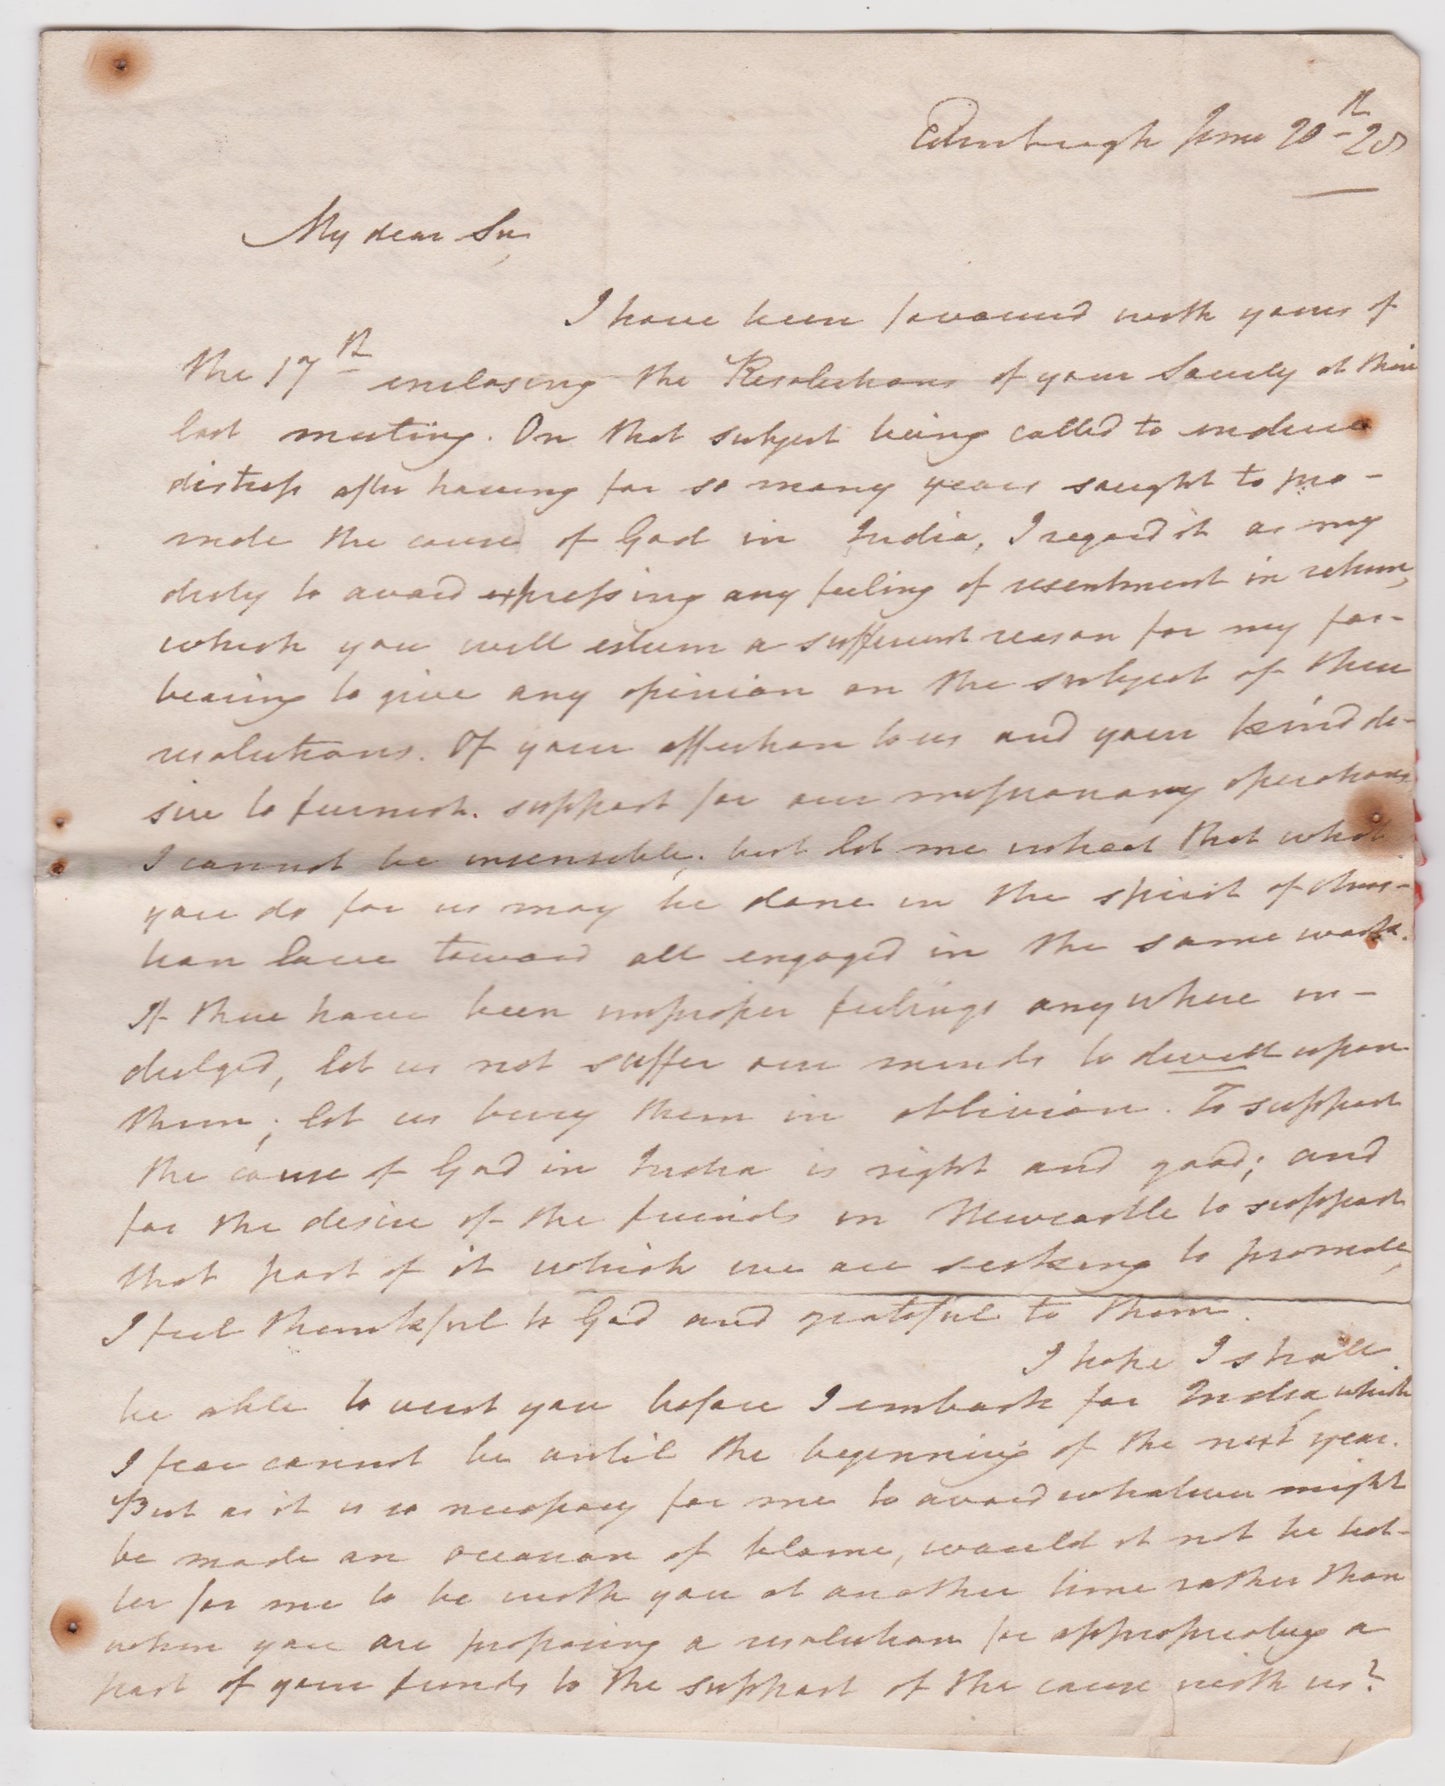 Edinburgh June 20th 28
My dear Sir,
I have been favoured with yours of
the 17th enclosing the Resolutions of your Society at their
last meeting. On that subject being called to endure
distress after having for so many years sought to pro-
mote the cause of God in India, I regard it as my
duty to avoid expressing any feeling of resentment in return,
which you will esteem a sufficient reason for my for-
bearing to give any opinion on the subject of these
resolutions. Of your affection to us and your kind de-
sire to furnish support for our missionary operations
I cannot be insensible; but let me intreat that what
you do for us may be done in the spirit of chris-
tian love toward all engaged in the same work.
If there have been improper feelings any where in-
dulged, let us not suffer our minds to dwell upon
them; let us bury them in oblivion. To support
the cause of God in India is right and good; and
for the desire of the friends in Newcastle to support
that part of it which we are seeking to promote,
I feel thankful to God and grateful to them.
I hope I shall
be able to visit you before I embark for India, which
I fear cannot be until the beginning of the next year.
But as it is so necessary for me to avoid whatever might
be made an occasion of blame, would it not be bet-
ter for me to be with you at another time rather than
when you are proposing a resolution for appropriating a
part of your funds to the support of the cause with us?